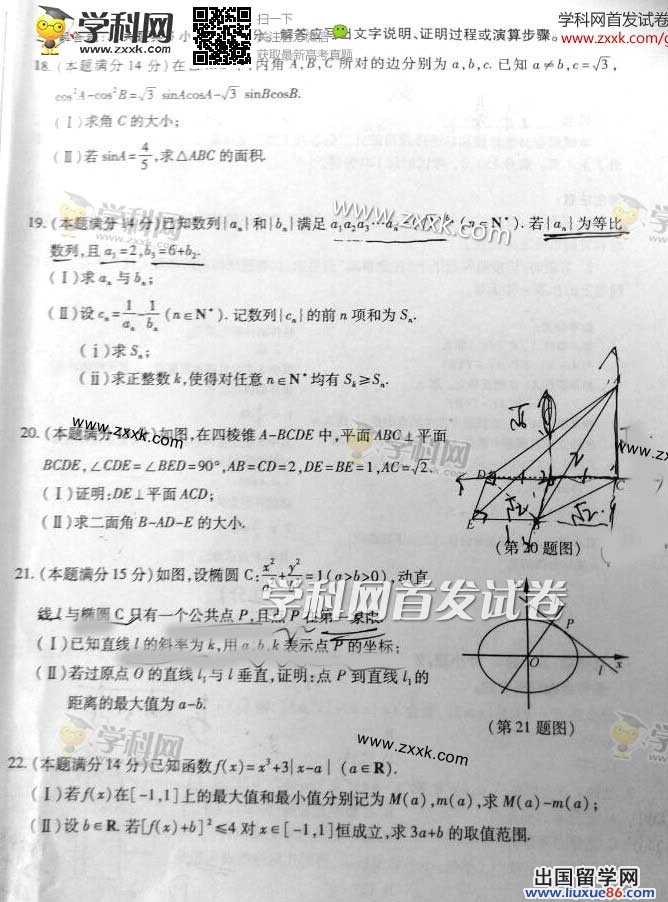 学科网
www.zxxk.com
扫一下
关注
获取最新高考真题
学科网首发试卷
www.zxxk.com/g
解答应写出文字说明、证明过程或演算步骤。
18. (本题满分14分)在 内角A,B,C所对的边分别为a,b,c. 已知a≠b,c=√3,
cos²A-cos²B=√3 sinAcosA-√3 sinBcosB.
(Ⅰ)求角C的大小;
(Ⅱ)若sinA=4/5,求△ABC的面积.
学科网
www.zxxk.com
19. (本题满分14分)已知数列{aₙ}和{bₙ}满足a₁a₂a₃…aₙ= (n∈N*). 若{aₙ}为等比
数列,且a₁=2,b₃=6+b₂.
(Ⅰ)求aₙ与bₙ;
(Ⅱ)设cₙ=1/aₙ-1/bₙ(n∈N*). 记数列{cₙ}的前n项和为Sₙ.
(ⅰ)求Sₙ;
(ⅱ)求正整数k,使得对任意n∈N*均有Sₖ≥Sₙ.
www.zxxk.com
学科网
20. (本题满分15分)如图,在四棱锥A-BCDE中,平面ABC⊥平面
BCDE,∠CDE=∠BED=90°,AB=CD=2,DE=BE=1,AC=√2.
(Ⅰ)证明:DE⊥平面ACD;
(Ⅱ)求二面角B-AD-E的大小.
D
E
B
C
√6
√2
√2
2
(第20题图)
21. (本题满分15分)如图,设椭圆C:x²/a²+y²/b²=1(a>b>0),动直
学科网首发试卷
线l与椭圆C只有一个公共点P,且点P在第一象限.
(Ⅰ)已知直线l的斜率为k,用a,b,k表示点P的坐标;
(Ⅱ)若过原点O的直线l₁与l垂直,证明:点P到直线l₁的
距离的最大值为a-b.
P
O
x
l
(第21题图)
学科网
www.zxxk.com
22. (本题满分14分)已知函数f(x)=x³+3|x-a|(a∈R).
(Ⅰ)若f(x)在[-1,1]上的最大值和最小值分别记为M(a),m(a),求M(a)-m(a);
(Ⅱ)设b∈R. 若[f(x)+b]²≤4对x∈[-1,1]恒成立,求3a+b的取值范围.
学科网
www.zxxk.com
出国留学网
www.liuxue86.com